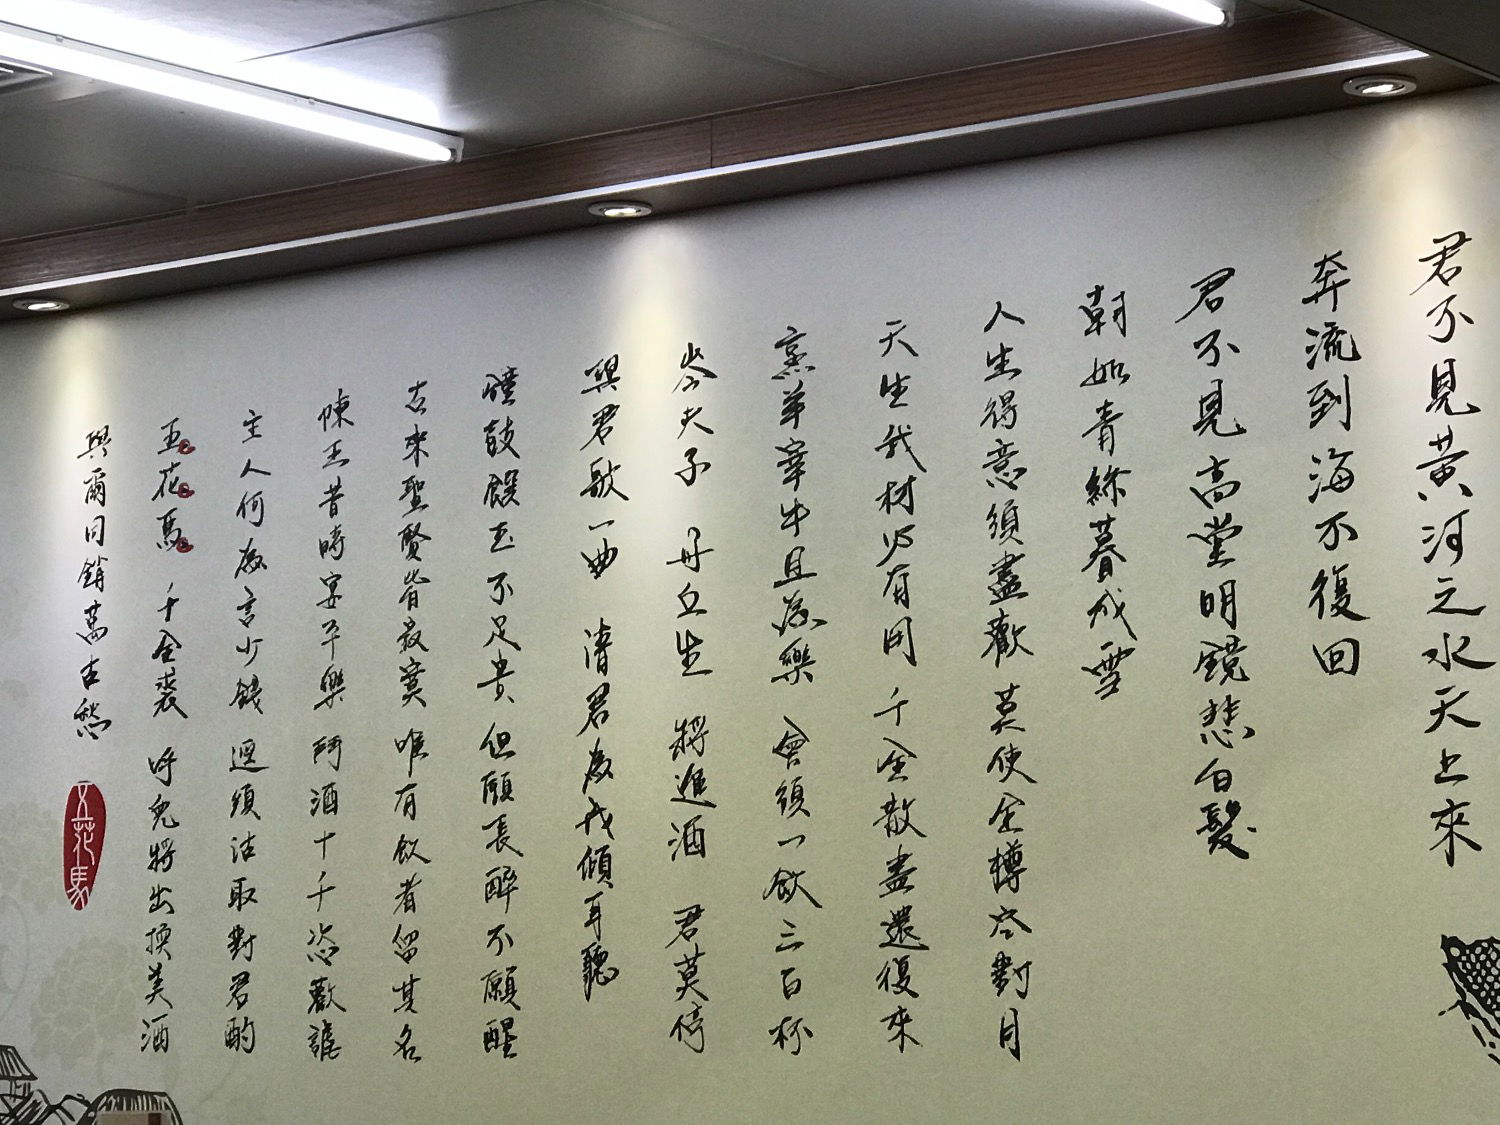 君不見黃河之水天上來
奔流到海不復回
君不見高堂明鏡悲白髮
朝如青絲暮成雪
人生得意須盡歡 莫使金樽空對月
天生我材必有用 千金散盡還復來
烹羊宰牛且為樂 會須一飲三百杯
岑夫子 丹丘生 將進酒 君莫停
與君歌一曲 請君為我傾耳聽
鐘鼓饌玉不足貴 但願長醉不願醒
古來聖賢皆寂寞 唯有飲者留其名
陳王昔時宴平樂 鬥酒十千恣歡謔
主人何為言少錢 逕須沽取對君酌
五花馬 千金裘 呼兒將出換美酒
與爾同銷萬古愁
五花馬